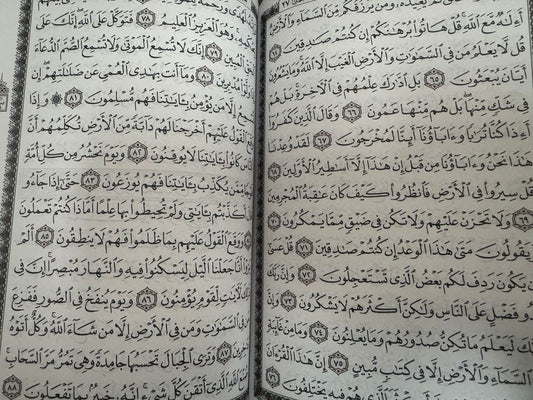 أَءِلَٰهٌ مَّعَ ٱللَّهِ قُلْ هَاتُوا۟ بُرْهَٰنَكُمْ إِن كُنتُمْ صَٰدِقِينَ
قُل لَّا يَعْلَمُ مَن فِى ٱلسَّمَٰوَٰتِ وَٱلْأَرْضِ ٱلْغَيْبَ إِلَّا ٱللَّهُ وَمَا يَشْعُرُونَ
أَيَّانَ يُبْعَثُونَ ٦٥ بَلِ ٱدَّٰرَكَ عِلْمُهُمْ فِى ٱلْءَاخِرَةِ بَلْ هُمْ
فِى شَكٍّ مِّنْهَا بَلْ هُم مِّنْهَا عَمُونَ ٦٦ وَقَالَ ٱلَّذِينَ كَفَرُوٓا۟
أَءِذَا كُنَّا تُرَٰبًا وَءَابَآؤُنَآ أَئِنَّا لَمُخْرَجُونَ ٦٧ لَقَدْ وُعِدْنَا
هَٰذَا نَحْنُ وَءَابَآؤُنَا مِن قَبْلُ إِنْ هَٰذَآ إِلَّآ أَسَٰطِيرُ ٱلْأَوَّلِينَ ٦٨
قُلْ سِيرُوا۟ فِى ٱلْأَرْضِ فَٱنظُرُوا۟ كَيْفَ كَانَ عَٰقِبَةُ ٱلْمُجْرِمِينَ
٦٩ وَلَا تَحْزَنْ عَلَيْهِمْ وَلَا تَكُن فِى ضَيْقٍ مِّمَّا يَمْكُرُونَ ٧٠
يَقُولُونَ مَتَىٰ هَٰذَا ٱلْوَعْدُ إِن كُنتُمْ صَٰدِقِينَ ٧١ قُلْ عَسَىٰٓ
أَن يَكُونَ رَدِفَ لَكُم بَعْضُ ٱلَّذِى تَسْتَعْجِلُونَ ٧٢ وَإِنَّ رَبَّكَ
لَذُو فَضْلٍ عَلَى ٱلنَّاسِ وَلَٰكِنَّ أَكْثَرَهُمْ لَا يَشْكُرُونَ ٧٣ وَإِنَّ
رَبَّكَ لَيَعْلَمُ مَا تُكِنُّ صُدُورُهُمْ وَمَا يُعْلِنُونَ ٧٤ وَمَا مِنْ غَآئِبَةٍ
فِى ٱلسَّمَآءِ وَٱلْأَرْضِ إِلَّا فِى كِتَٰبٍ مُّبِينٍ ٧٥ إِنَّ هَٰذَا ٱلْقُرْءَانَ
ٱلَّذِى هُمْ فِيهِ يَخْتَلِفُونَ ٧٦
وَهُوَ ٱلْعَزِيزُ ٱلْعَلِيمُ ٧٨ فَتَوَكَّلْ عَلَى ٱللَّهِ إِنَّكَ عَلَى
ٱلْمُبِينِ ٧٩ إِنَّكَ لَا تُسْمِعُ ٱلْمَوْتَىٰ وَلَا تُسْمِعُ ٱلصُّمَّ ٱلدُّعَآءَ
مُدْبِرِينَ ٨٠ وَمَآ أَنتَ بِهَٰدِى ٱلْعُمْىِ عَن ضَلَٰلَتِهِمْ إِن
تُسْمِعُ إِلَّا مَن يُؤْمِنُ بِـَٔايَٰتِنَا فَهُم مُّسْلِمُونَ ٨١ وَإِذَا
وَقَعَ ٱلْقَوْلُ عَلَيْهِمْ أَخْرَجْنَا لَهُمْ دَآبَّةً مِّنَ ٱلْأَرْضِ تُكَلِّمُهُمْ أَنَّ
ٱلنَّاسَ كَانُوا۟ بِـَٔايَٰتِنَا لَا يُوقِنُونَ ٨٢ وَيَوْمَ نَحْشُرُ مِن كُلِّ أُمَّةٍ
فَوْجًا مِّمَّن يُكَذِّبُ بِـَٔايَٰتِنَا فَهُمْ يُوزَعُونَ ٨٣ حَتَّىٰٓ إِذَا جَآءُو
قَالَ أَكَذَّبْتُم بِـَٔايَٰتِى وَلَمْ تُحِيطُوا۟ بِهَا عِلْمًا أَمَّاذَا كُنتُمْ تَعْمَلُونَ
٨٤ وَوَقَعَ ٱلْقَوْلُ عَلَيْهِم بِمَا ظَلَمُوا۟ فَهُمْ لَا يَنطِقُونَ ٨٥ أَلَمْ
يَرَوْا۟ أَنَّا جَعَلْنَا ٱلَّيْلَ لِيَسْكُنُوا۟ فِيهِ وَٱلنَّهَارَ مُبْصِرًا إِنَّ فِى
ذَٰلِكَ لَءَايَٰتٍ لِّقَوْمٍ يُؤْمِنُونَ ٨٦ وَيَوْمَ يُنفَخُ فِى ٱلصُّورِ فَفَزِعَ
مَن فِى ٱلسَّمَٰوَٰتِ وَمَن فِى ٱلْأَرْضِ إِلَّا مَن شَآءَ ٱللَّهُ وَكُلٌّ أَتَوْهُ
دَٰخِرِينَ ٨٧ وَتَرَى ٱلْجِبَالَ تَحْسَبُهَا جَامِدَةً وَهِىَ تَمُرُّ مَرَّ ٱلسَّحَابِ
صُنْعَ ٱللَّهِ ٱلَّذِىٓ أَتْقَنَ كُلَّ شَىْءٍ إِنَّهُۥ خَبِيرٌۢ بِمَا تَفْعَلُونَ ٨٨